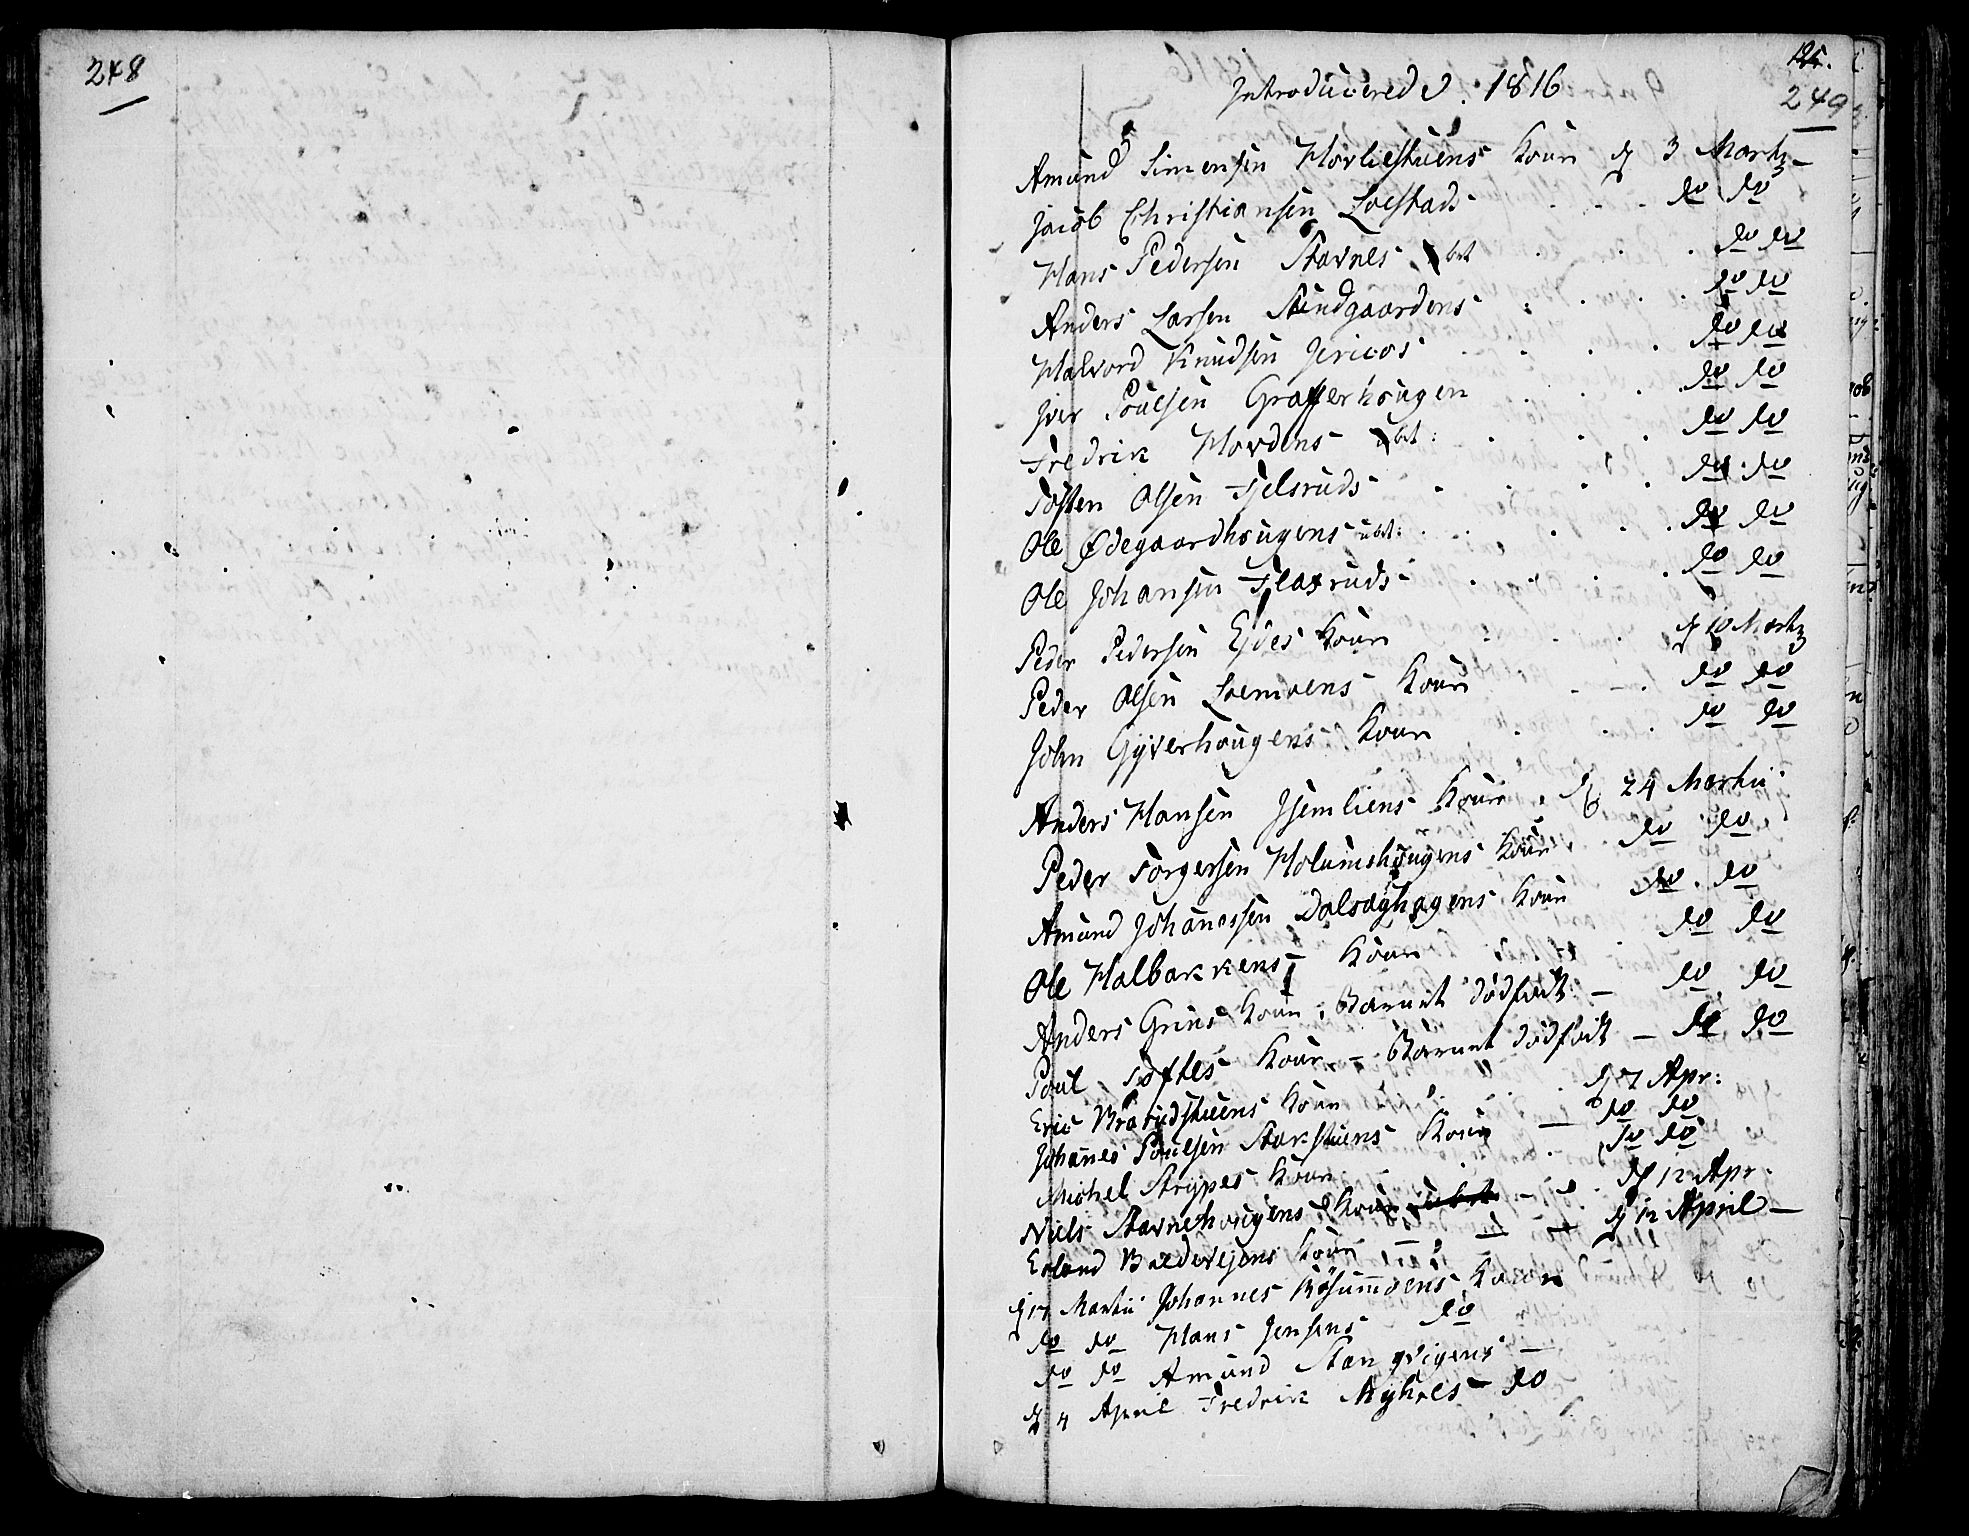 248
125.
249
Introducerede. 1816
Amund Simensen Hovliestuens Kone d 3 Marty
Jacob Christiansen Loestads do do
Hans Pedersen Stavnes ubet do do
Anders Larsen Sundgaardens do do
Halvord Knudsen Jericos do do
Iver Poulsen Grafferhougen do do
Fredrik Hovdens ubet: do do
Tosten Olsen Fjelsruds do do
Ole Ødegaardhougens ubet: do do
Ole Johansen Flaxruds do do
Peder Pedersen Eides Kone d 10 Marty
Peder Olsen Loemoens Kone do do
John Gyverhougens Kone do do
Anders Hansen Isemliens Kone d 24 Martii
Peder Torgersen Holumshougens Kone do do
Amund Johanessen Dalsaghagens Kone do do
Ole Halbakkens Kone do do
Anders Grins Kone; Barnet dødfødt - do do
Poul Toftes Kone - Barnet dødfødt - do do
Eric Brarudstuens Kone d 7 Apr:
Johanes Poulsen Stakstuens Kone - do do
Michel Strypes Kone do do
Niels Stavnehougens Kone ubet - d 12 Apr
Erland Boldvigens Kone d 12 April -
d 17 Martii Johannes Røsumoens Konen
do do Hans Jensens do
do do Amund Stangvigens -
d 4 April Fredrik Myhres - do